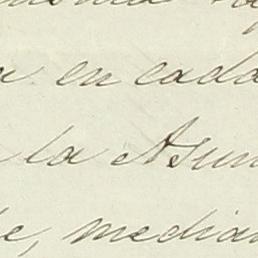 en cada
la Asun
e, median